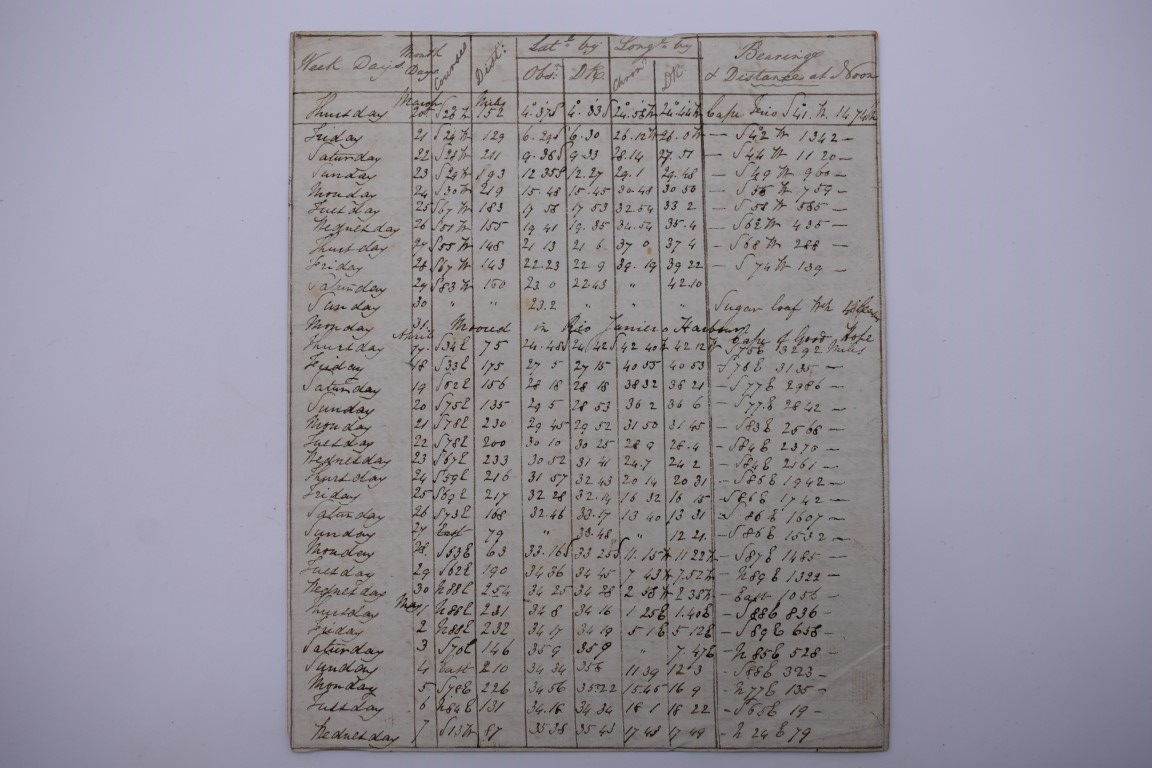 Week Days Month Days Courses Dist. Lat. by Long. by Bearings
Obs. DR. Chron. DR & Distance at Noon
March Miles
Thursday 20 S 28 W 152 4.37 S 4.33 S 24.58 W 24.44 W Cape Frio S 41. W. 1474
Friday 21 S 24 W 129 6.29 S 6.30 26.12 W 26.0 W — S 42 W 1342 —
Saturday 22 S 28 W 211 9.36 S 9.33 28.14 27.51 — S 44 W 1120 —
Sunday 23 S 29 W 193 12.35 S 12.27 29.1 29.48 — S 49 W 960 —
Monday 24 S 30 W 219 15.48 15.45 30.48 30.50 — S 56 W 759 —
Tuesday 25 S 67 W 183 17 56 17 53 32.54 33 2 — S 58 W 585 —
Wednesday 26 S 51 W 155 19 41 19.35 34.54 35.4 — S 62 W 435 —
Thursday 27 S 55 W 148 21 13 21 6. 37 0 37 4 — S 68 W 288 —
Friday 28 S 67 W 143 22.23 22 9 39.19 39 22 — S 74 W 139 —
Saturday 29 S 83 W 160 23.0 22.43 " 42.10
Sunday 30 " " 23.2 " " " Sugar loaf
Monday 31. Moored in Rio Janiero Harbour
April Cape of Good Hope
Thursday 17 S 34 E 75 24.48 S 24 42 S 42 40 W 42 12 W S 75 E 3292 Miles
Friday 18 S 33 E 175 27 5 27 15 40 55 40 53 — S 76 E 3135 —
Saturday 19 S 62 E 156 28 18 28 18 38 32 38 21 — S 77 E 2986 —
Sunday 20 S 75 E 135 29 5 28 53 36 2 36 6 — S 77 E 2842 —
Monday 21 S 78 E 230 29 45 29 52 31 50 31 45 — S 83 E 2568 —
Tuesday 22 S 78 E 200 30 10 30 25 28 9 28.4 — S 84 E 2370 —
Wednesday 23 S 67 E 233 30 52 31 41 24.7 24 2 — S 84 E 2161 —
Thursday 24 S 59 E 216 31 57 32 43 20 14 20 31 — S 86 E 1942 —
Friday 25 S 69 E 217 32 28 32.14 16 32 16 15 — S 86 E 1742 —
Saturday 26 S 73 E 168 32 46 33.17 13 40 13 31 — S 86 E 1607 —
Sunday 27 East 79 " 33.48 " 12 21 — S 86 E 1532 —
Monday 28 S 53 E 63 33.16 S 33 25 S 11.15 W 11 22 W — S 87 E 1485 —
Tuesday 29 S 62 E 190 34 36 34 45 7 43 W 7.52 W — N 89 E 1322 —
Wednesday 30 N 88 E 254 34 25 34 28 2 58 W 2 38 W — East 1056 —
Thursday May 1 N 88 E 231 34 8 34 16 1 25 E 1.40 E — S 88 E 836 —
Friday 2 N 88 E 232 34 17 34 19 5 1 E 5.12 E — S 89 E 658 —
Saturday 3 S 70 E 146 35 9 35 9 " 7.47 E — N 85 E 528 —
Sunday 4 East 210 34 34 35 8 11 39 12 3 — S 88 E 323 —
Monday 5 S 78 E 226 34 56 35 22 15.45 16 9 — N 77 E 135 —
Tuesday 6 N 84 E 131 34.18 34 34 18 1 18 22 — S 65 E 19 —
Wednesday 7 S 13 W 87 35 38 35 43 17 48 17 49 — N 24 E 79